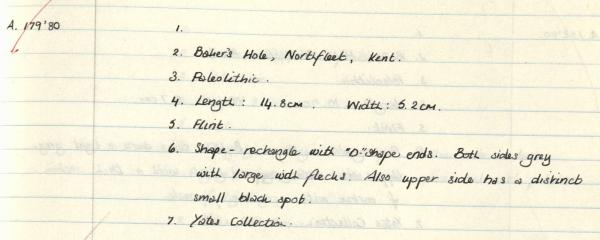 A. 179'80
1.
2. Baker's Hole, Northfleet, Kent.
3. Paleolithic.
4. Length: 14.8cm. Width: 5.2cm.
5. Flint.
6. Shape - rectangle with "D" shape ends. Both sides grey
with large with flecks. Also upper side has a distinct
small black spot.
7. Yates Collection.